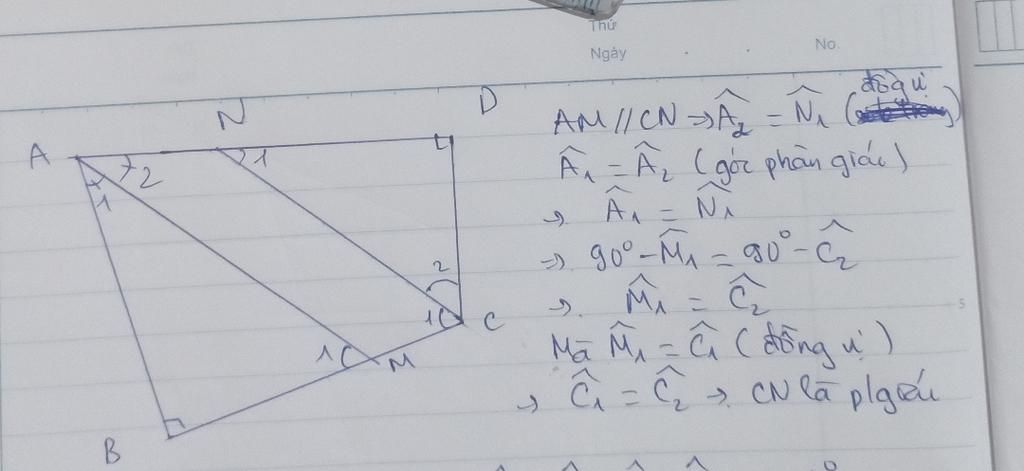 Thứ
Ngày No.
A N D
2 1
1
2
1 C
1 M
B
AM // CN → Â₂ = N̂₁ (đồng vị)
Â₁ = Â₂ (góc phân giác)
→ Â₁ = N̂₁
→ 90° - M̂₁ = 90° - Ĉ₂
→ M̂₁ = Ĉ₂
Mà M̂₁ = Ĉ₁ (đồng vị)
→ Ĉ₁ = Ĉ₂ → CN là p/giác